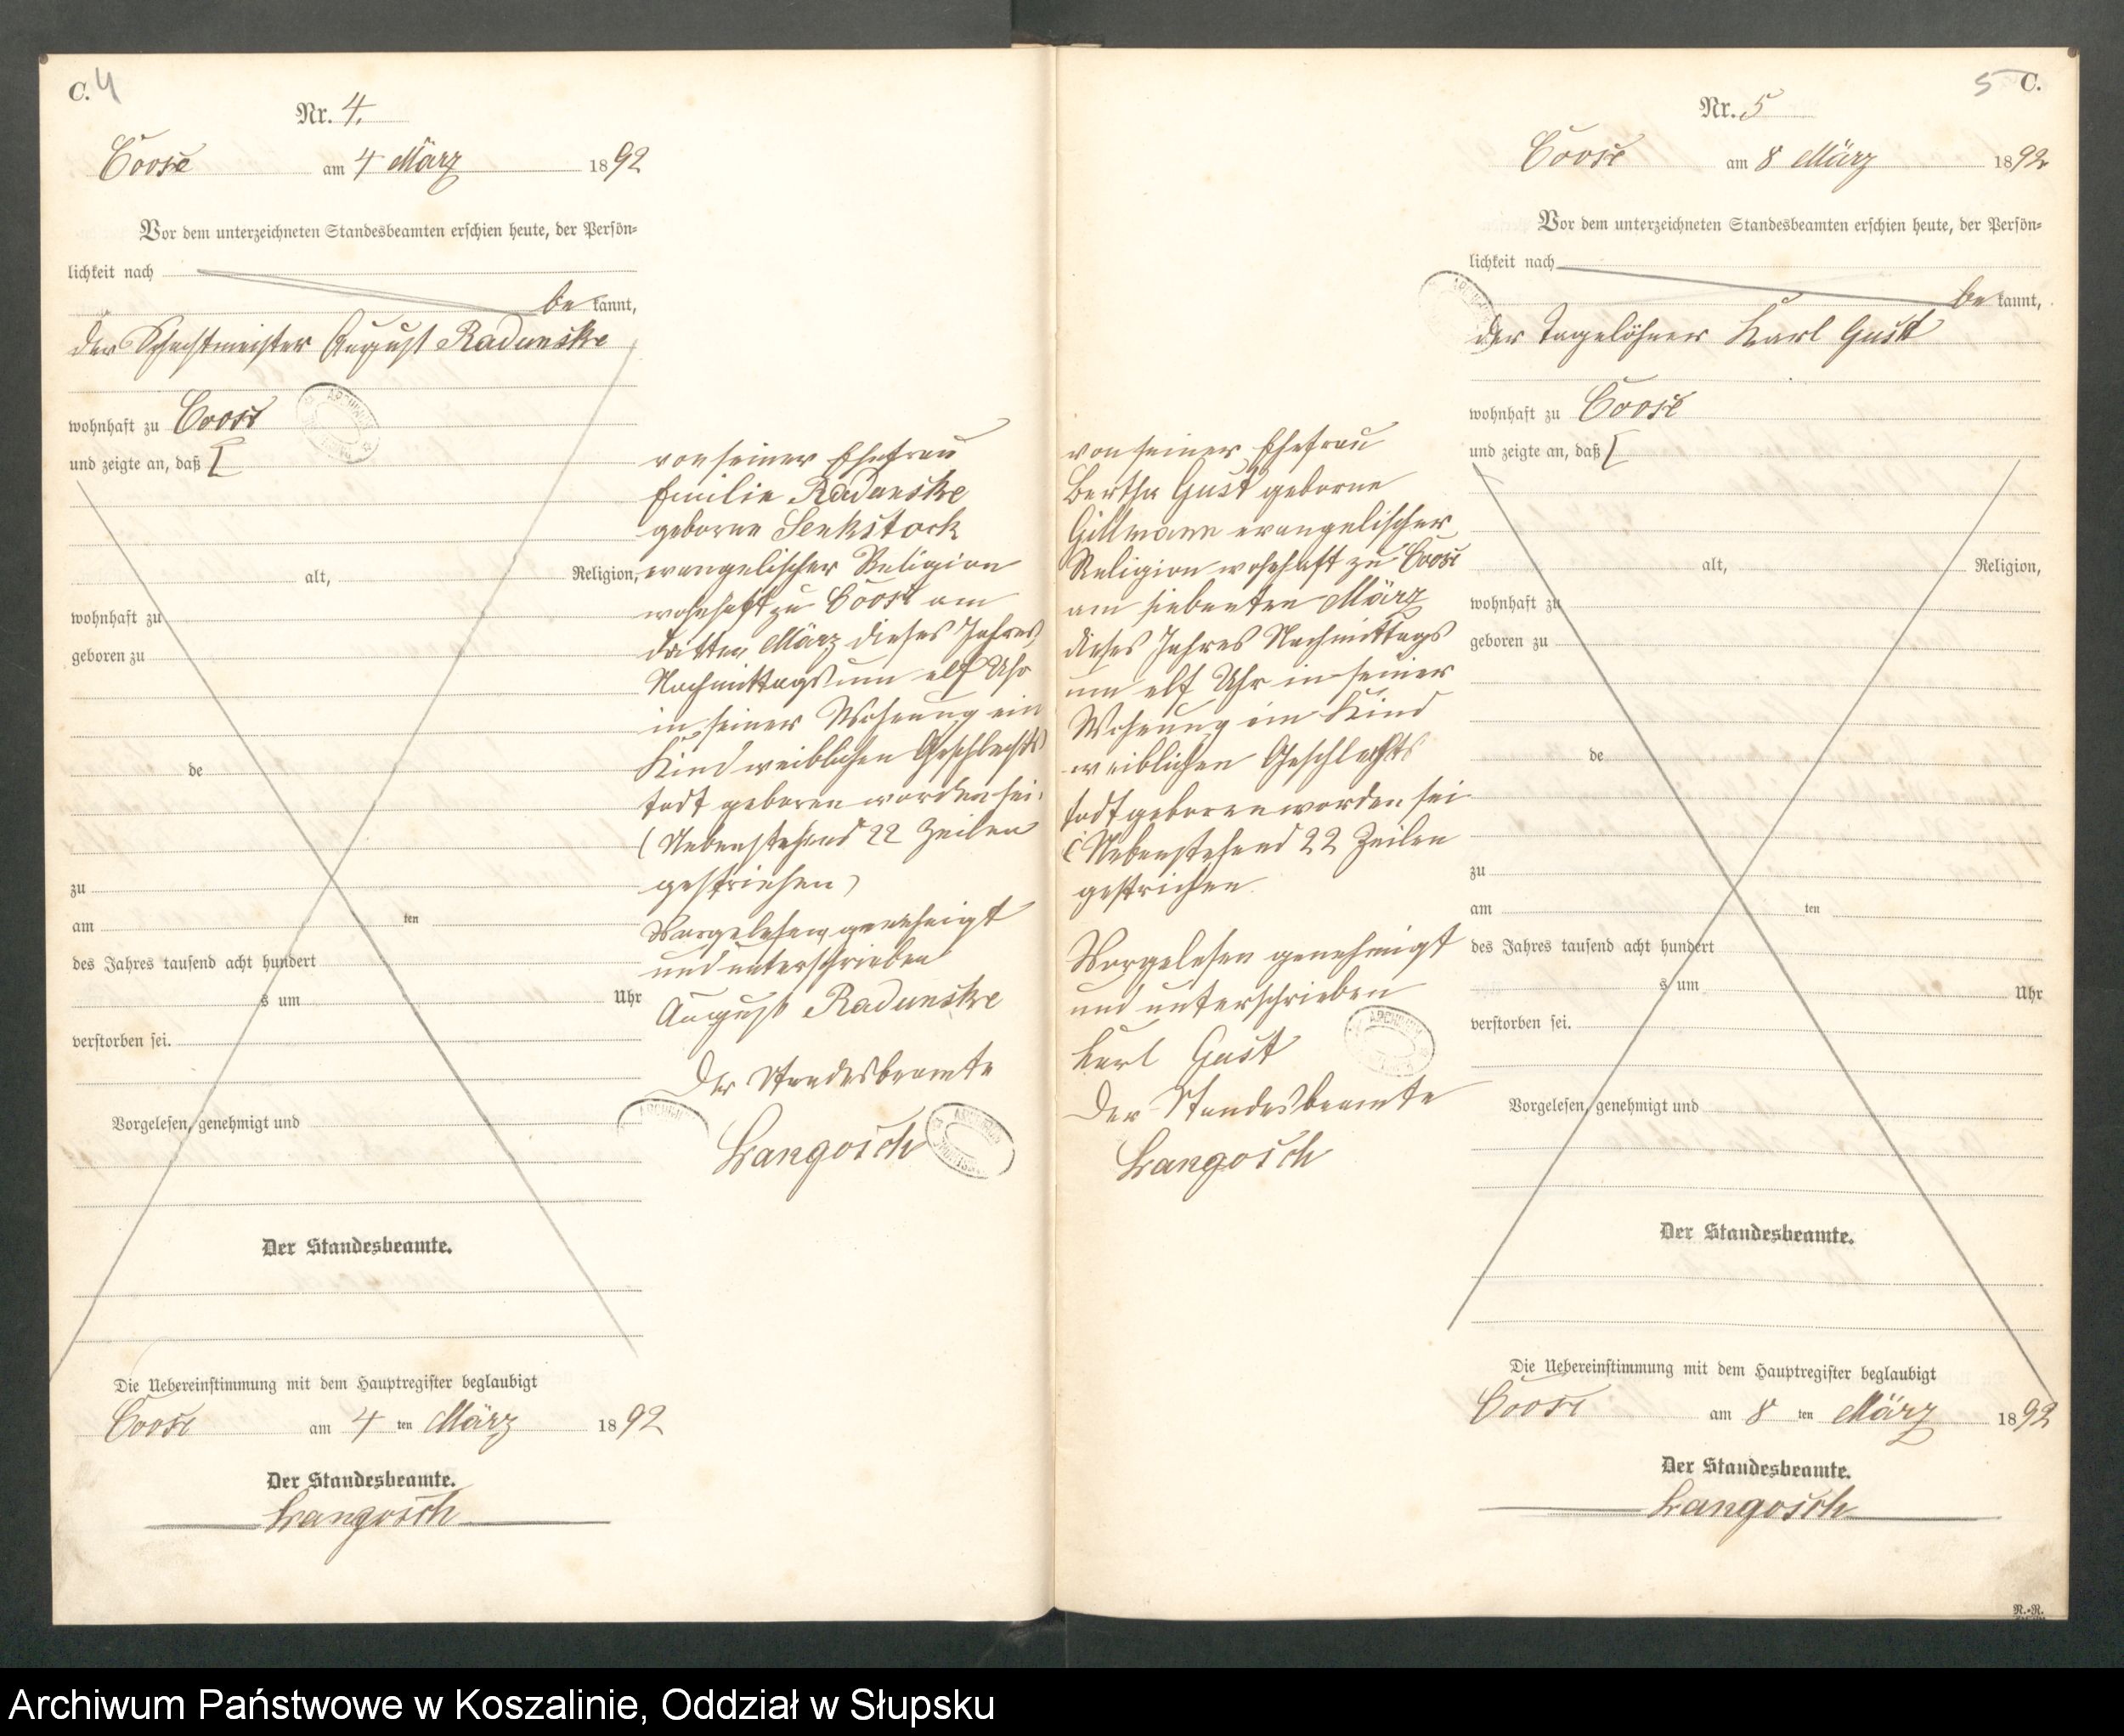 C. 4
Nr. 4.
Coose am 4 März 1892
Vor dem unterzeichneten Standesbeamten erschien heute, der Persön-
lichkeit nach
be kannt,
der Schachtmeister August Radunske
wohnhaft zu Coose
und zeigte an, daß [
alt, Religion,
wohnhaft zu
geboren zu
de
zu
am ten
des Jahres tausend acht hundert
s um Uhr
verstorben sei.
Vorgelesen, genehmigt und
Der Standesbeamte.
Die Uebereinstimmung mit dem Hauptregister beglaubigt
Coose am 4 ten März 1892
Der Standesbeamte.
Langosch
von seiner Ehefrau
Emilie Radunske
geborne Senkstock
evangelischer Religion
wohnhaft zu Coose am
dritten März dieses Jahres
Nachmittags um elf Uhr
in seiner Wohnung ein
Kind weiblichen Geschlechts
todt geboren worden sei.
(Nebenstehend 22 Zeilen
gestrichen)
Vorgelesen genehmigt
und unterschrieben
August Radunske
Der Standesbeamte
Langosch
5 C.
Nr. 5
Coose am 8 März 1892
Vor dem unterzeichneten Standesbeamten erschien heute, der Persön-
lichkeit nach
be kannt,
der Tagelöhner Karl Gust
wohnhaft zu Coose
und zeigte an, daß [
alt, Religion,
wohnhaft zu
geboren zu
de
zu
am ten
des Jahres tausend acht hundert
s um Uhr
verstorben sei.
Vorgelesen, genehmigt und
Der Standesbeamte.
Die Uebereinstimmung mit dem Hauptregister beglaubigt
Coose am 8 ten März 1892
Der Standesbeamte.
Langosch
von seiner Ehefrau
Bertha Gust geborne
Gillmann evangelischer
Religion wohnhaft zu Coose
am siebenten März
dieses Jahres Nachmittags
um elf Uhr in seiner
Wohnung ein Kind
weiblichen Geschlechts
todt geboren worden sei
(Nebenstehend 22 Zeilen
gestrichen
Vorgelesen genehmigt
und unterschrieben
Karl Gust
Der Standesbeamte
Langosch
N.-R.
Archiwum Państwowe w Koszalinie, Oddział w Słupsku